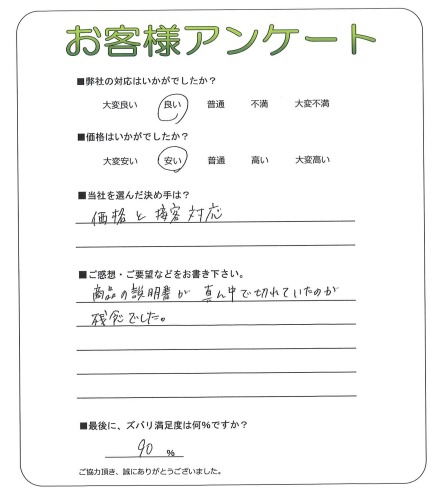 お客様アンケート
■弊社の対応はいかがでしたか？
大変良い 良い 普通 不満 大変不満
■価格はいかがでしたか？
大変安い 安い 普通 高い 大変高い
■当社を選んだ決め手は？
価格と接客対応
■ご感想・ご要望などをお書き下さい。
商品の説明書が真ん中で切れていたのが
残念でした。
■最後に、ズバリ満足度は何％ですか？
90 %
ご協力頂き、誠にありがとうございました。